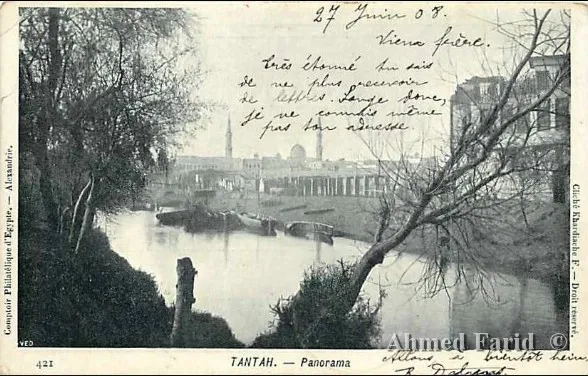 27 Juin 08.
Vieux frère.
Très étonné tu sais
de ne plus recevoir
de lettres. Songe donc,
je ne connais même
pas ton adresse
Comptoir Philatélique d'Egypte. — Alexandrie.
Cliché Khardiache F. — Droit réservé.
VED
421
TANTAH. — Panorama
Ahmed Farid ©
Allons à bientôt hein